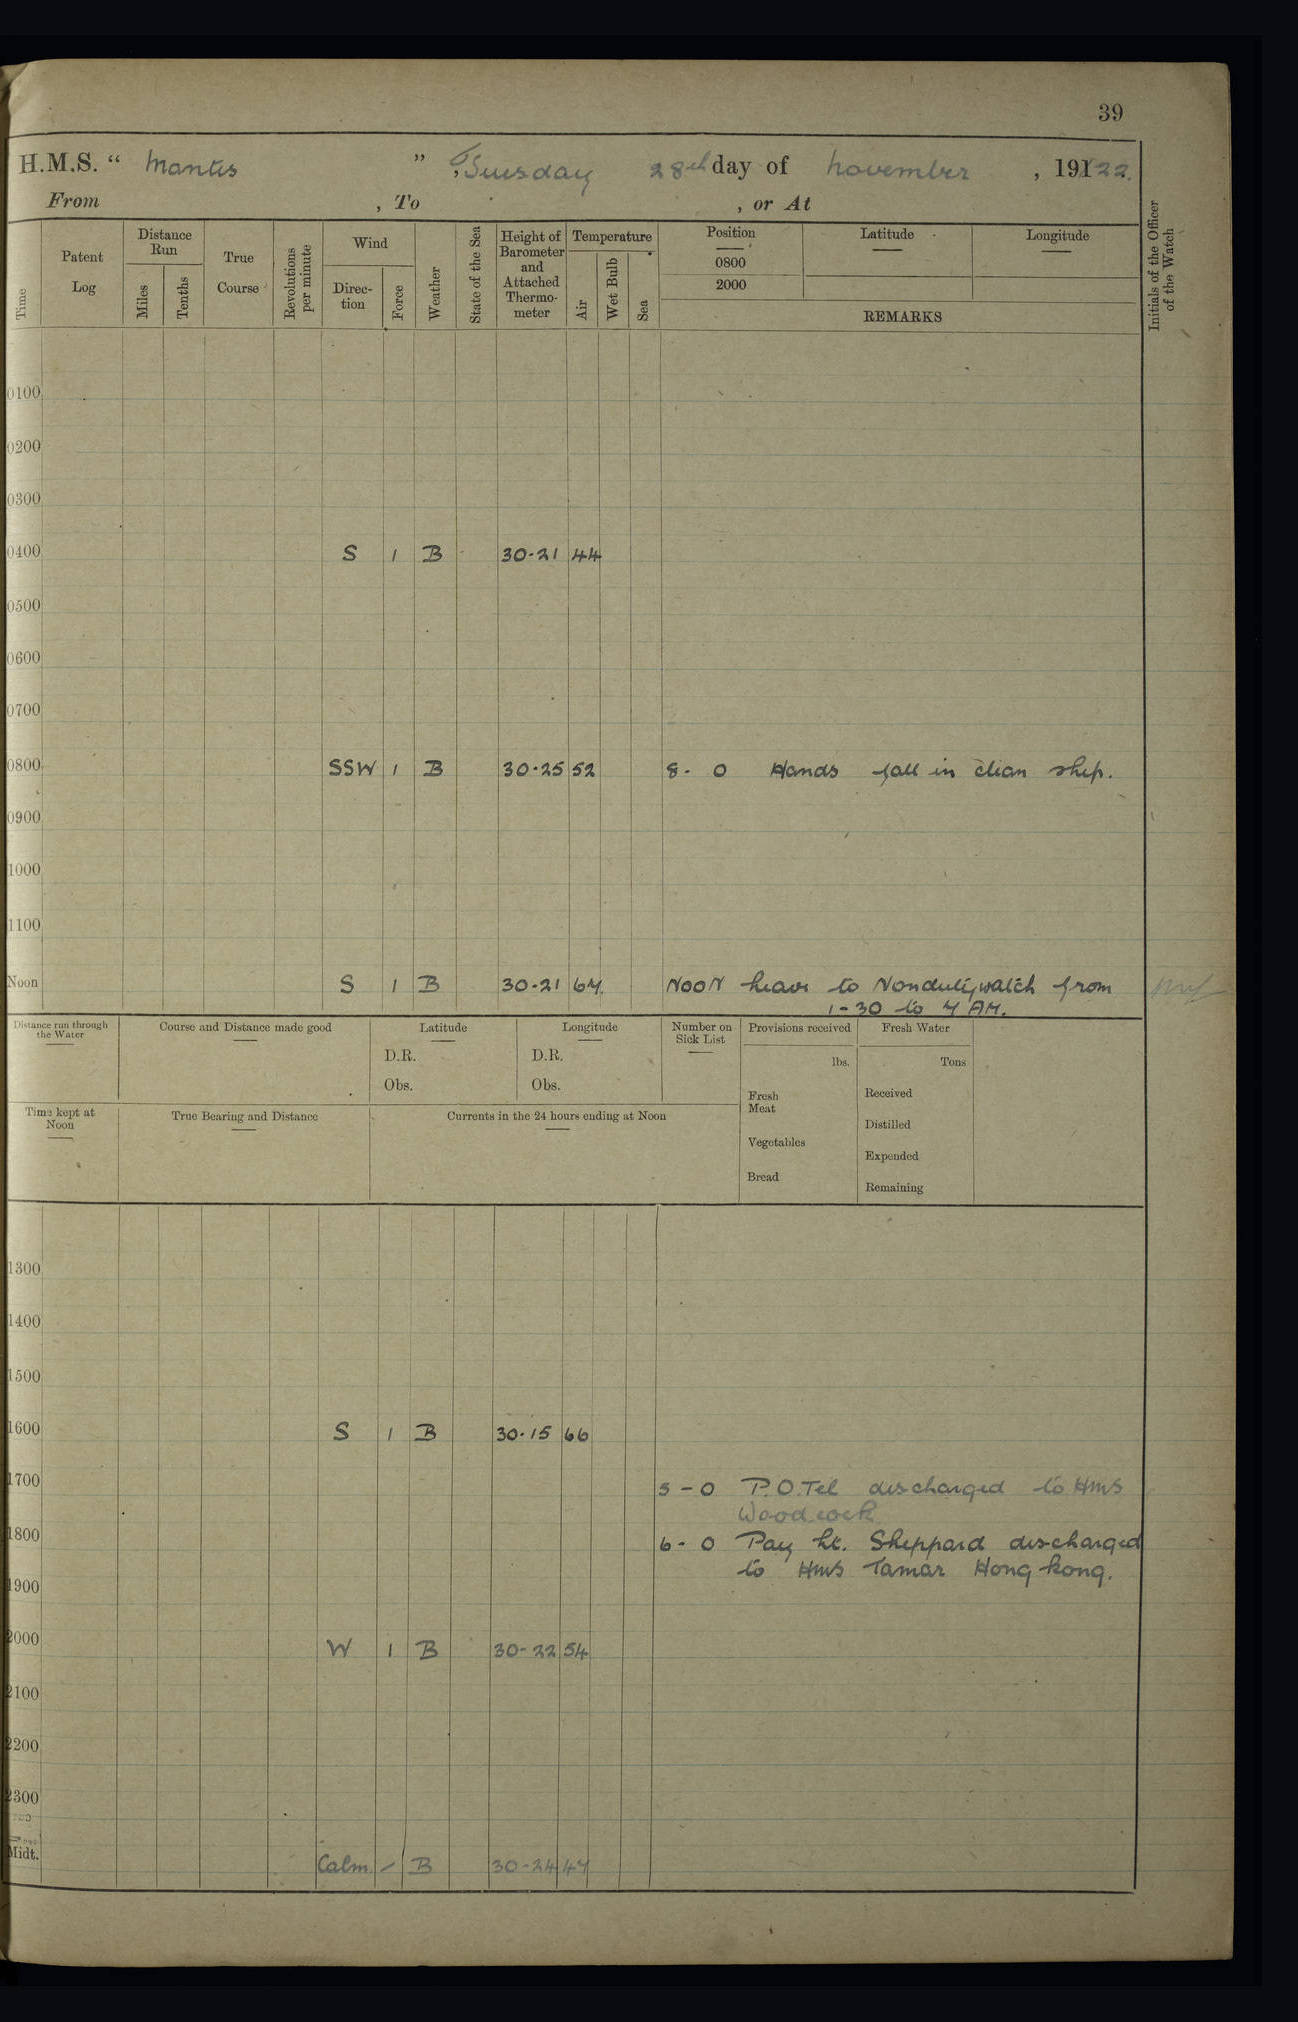 39
H.M.S. “ Mantis ” , Tuesday 28th day of November , 191 22.
From , To , or At
Time
Patent Log
Distance Run
Miles
Tenths
True Course
Revolutions per minute
Wind
Direc-tion
Force
Weather
State of the Sea
Height of Barometer and Attached Thermo-meter
Temperature
Air
Wet Bulb
Sea
Position
0800
2000
Latitude
Longitude
REMARKS
Initials of the Officer of the Watch
0100
0200
0300
0400 S 1 B 30·21 44
0500
0600
0700
0800 SSW 1 B 30·25 52 8 - 0 Hands fall in clean ship.
0900
1000
1100
Noon S 1 B 30·21 67 NOON leave to Nonduty watch from
1-30 to 7 AM.
Distance run through the Water
Course and Distance made good
Latitude
D.R.
Obs.
Longitude
D.R.
Obs.
Number on Sick List
Provisions received
lbs.
Fresh Meat
Vegetables
Bread
Fresh Water
Tons
Received
Distilled
Expended
Remaining
Time kept at Noon
True Bearing and Distance
Currents in the 24 hours ending at Noon
1300
1400
1500
1600 S 1 B 30·15 66
1700 5 - 0 P.O.Tel discharged to HMS
Woodcock
1800 6 - 0 Pay Lt. Sheppard discharged
to HMS Tamar Hong kong.
1900
2000 W 1 B 30-22 54
2100
2200
2300
Midt. Calm - B 30-24 47